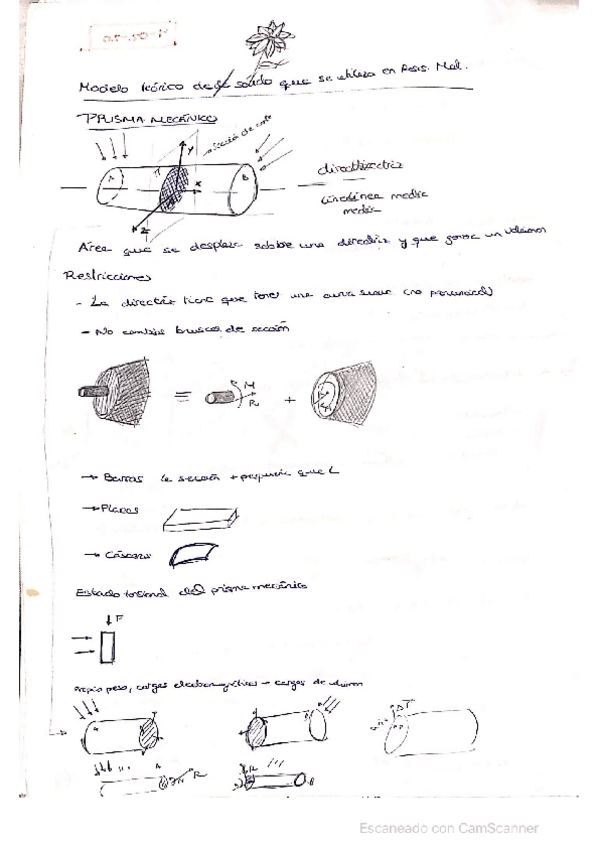 Modelo teórico de sólido que se utiliza en Resis. Mat.
PRISMA MECÁNICO
sección de corte
Y
π
A
X
B
Z
directriz
línea media
media
Área que se desplaza sobre una directriz y que genera un volumen
Restricciones
- La directriz tiene que tener una curva suave
- No cambios bruscos de sección
= M
R
+
→ Barras la sección + pequeña que L
→ Placas
→ Cáscaras
Estado tensional del prisma mecánico
↓ F
Propio peso, cargas → cargas de volumen
A
B
R
R
B
Escaneado con CamScanner